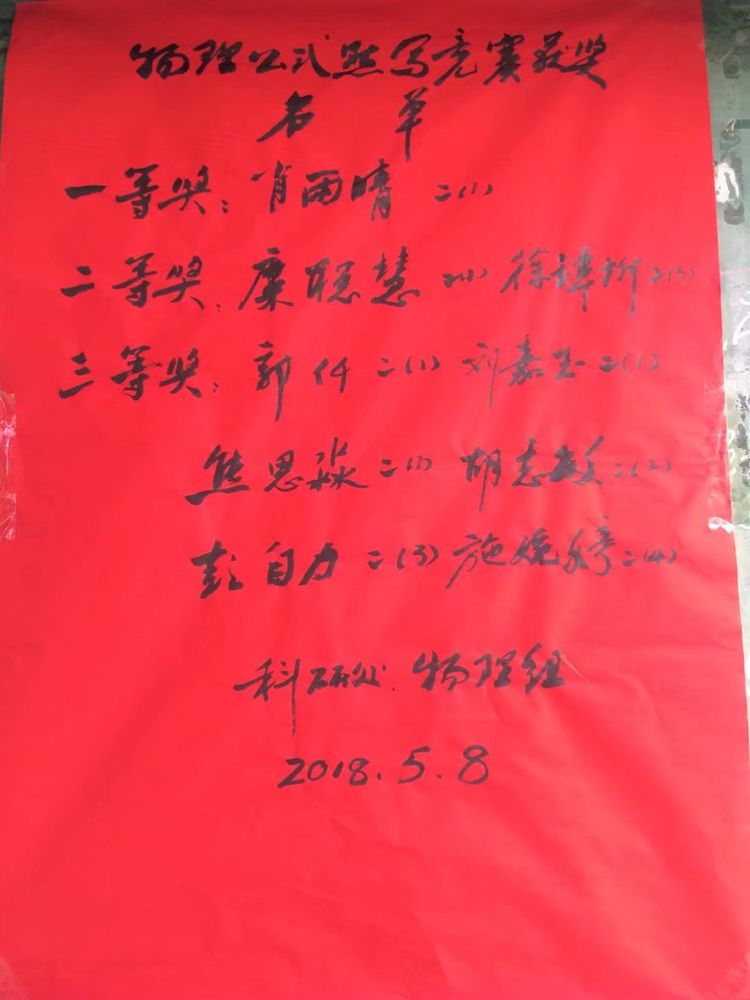 物理公式默写竞赛获奖
名单
一等奖：肖雨晴 二(1)
二等奖：廉聪慧 二(1) 徐 二(3)
三等奖：郭仟 二(1) 刘嘉玉 二(1)
熊思淼 二(1) 胡志敏 二(2)
彭自力 二(3) 施婉婷 二(4)
科研处 物理组
2018.5.8